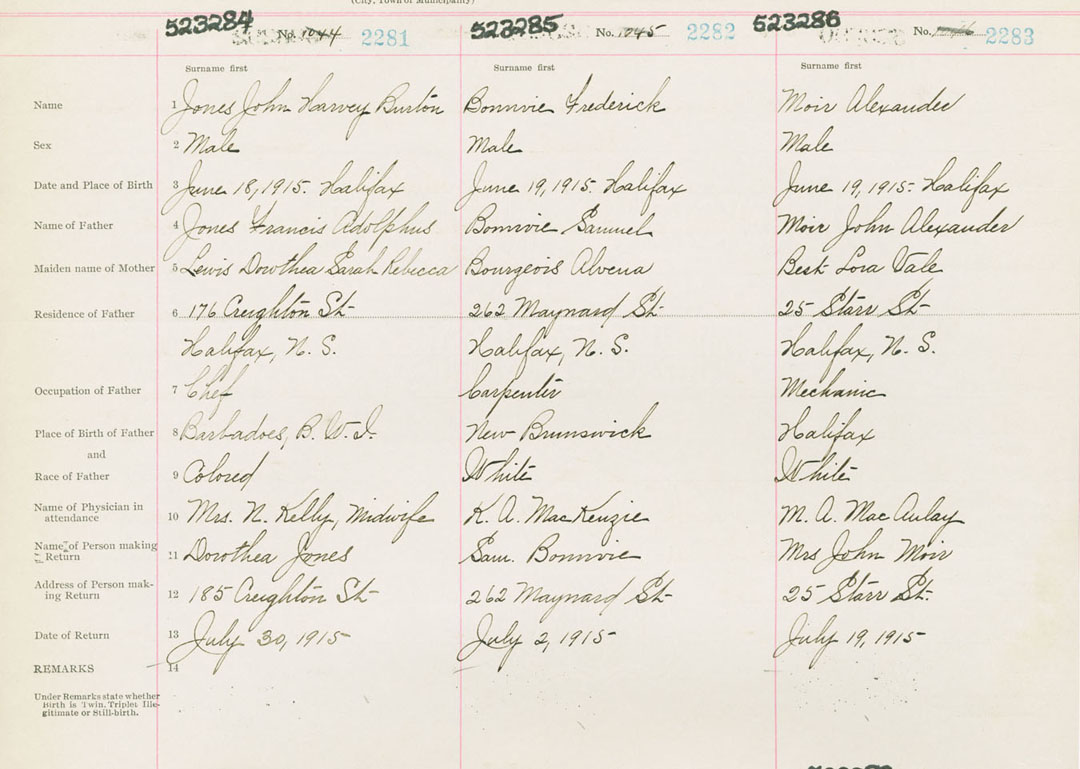 (City, Town or Municipality)
523284 No. 1044 2281 523285 No. 1045 2282 523286 No. 2283
Surname first Surname first Surname first
Name 1 Jones John Harvey Burton Bonnvie Frederick Moir Alexander
Sex 2 Male Male Male
Date and Place of Birth 3 June 18, 1915. Halifax June 19, 1915. Halifax June 19, 1915. Halifax
Name of Father 4 Jones Francis Adolphus Bonnvie Samuel Moir John Alexander
Maiden name of Mother 5 Lewis Dorothea Sarah Rebicca Bourgeois Alvena Best Lora Vale
Residence of Father 6 176 Creighton St 262 Maynard St. 25 Starr St
Halifax, N. S. Halifax, N. S. Halifax, N. S.
Occupation of Father 7 Chef Carpenter Mechanic
Place of Birth of Father 8 Barbadoes, B. W. I. New Brunswick Halifax
and
Race of Father 9 Colored White White
Name of Physician in
attendance 10 Mrs. N. Kelly, Midwife K. A. MacKenzie M. A. MacAulay
Name of Person making
Return 11 Dorothea Jones Sam. Bonnvie Mrs John Moir
Address of Person mak-
ing Return 12 185 Creighton St 262 Maynard St 25 Starr St.
Date of Return 13 July 30, 1915 July 2, 1915 July 19, 1915
REMARKS 14
Under Remarks state whether
Birth is Twin, Triplet, Ille-
gitimate or Still-birth.